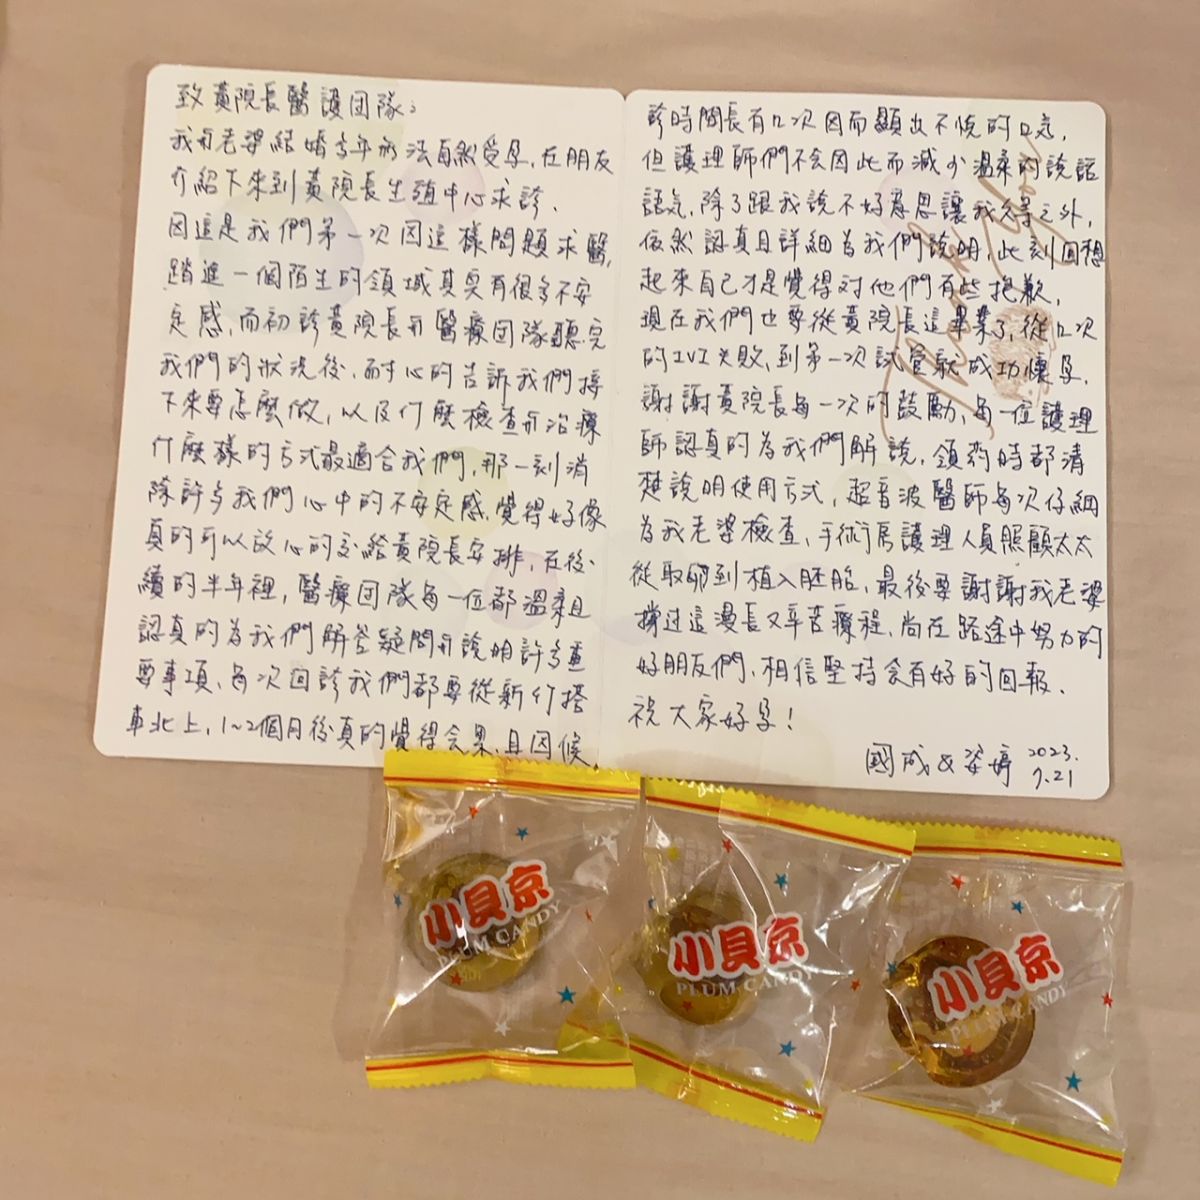 致黃院長醫護团隊:
我与老婆結婚多年無法自然受孕,在朋友
介紹下來到黃院長生殖中心求診、
因這是我們第一次因這樣問題求醫,
踏進一個陌生的領域其实有很多不安
定感,而初診黃院長与醫療团隊聽完
我們的狀況後,耐心的告訴我們接
下來要怎麼做,以及什麼檢查与治療
什麼樣的方式最適合我們,那一刻消
除許多我們心中的不安定感、覺得好像
真的可以放心的交給黃院長安排,在後
續的半年裡,醫療团隊每一位都溫柔且
認真的為我們解答疑問与說明許多重
要事項、每次回診我們都要從新竹搭
車北上,1~2個月後真的覺得会累,且因候
診時間長有几次因而顯出不悅的口氣,
但護理師們不会因此而減少溫柔的說話
語氣,除了跟我說不好意思讓我久等之外,
依然認真且詳細為我們說明,此刻回想
起來自己才是覺得対他們有些抱歉,
現在我們也要從黃院長這畢業了,從几次
的IUI失敗,到第一次試管就成功懷孕,
謝謝黃院長每一次的鼓勵、每一位護理
師認真的為我們解說,領藥時都清
楚說明使用方式,超音波醫師每次仔細
為我老婆檢查,手術房護理人員照顧太太
從取卵到植入胚胎,最後要謝謝我老婆
撐过這漫長又辛苦療程,尚在路途中努力的
好朋友們,相信堅持会有好的回報、
祝大家好孕!
國成&姿婷 2023.
7.21
Thank you
小貝京
PLUM CANDY
小貝京
PLUM CANDY
小貝京
PLUM CANDY